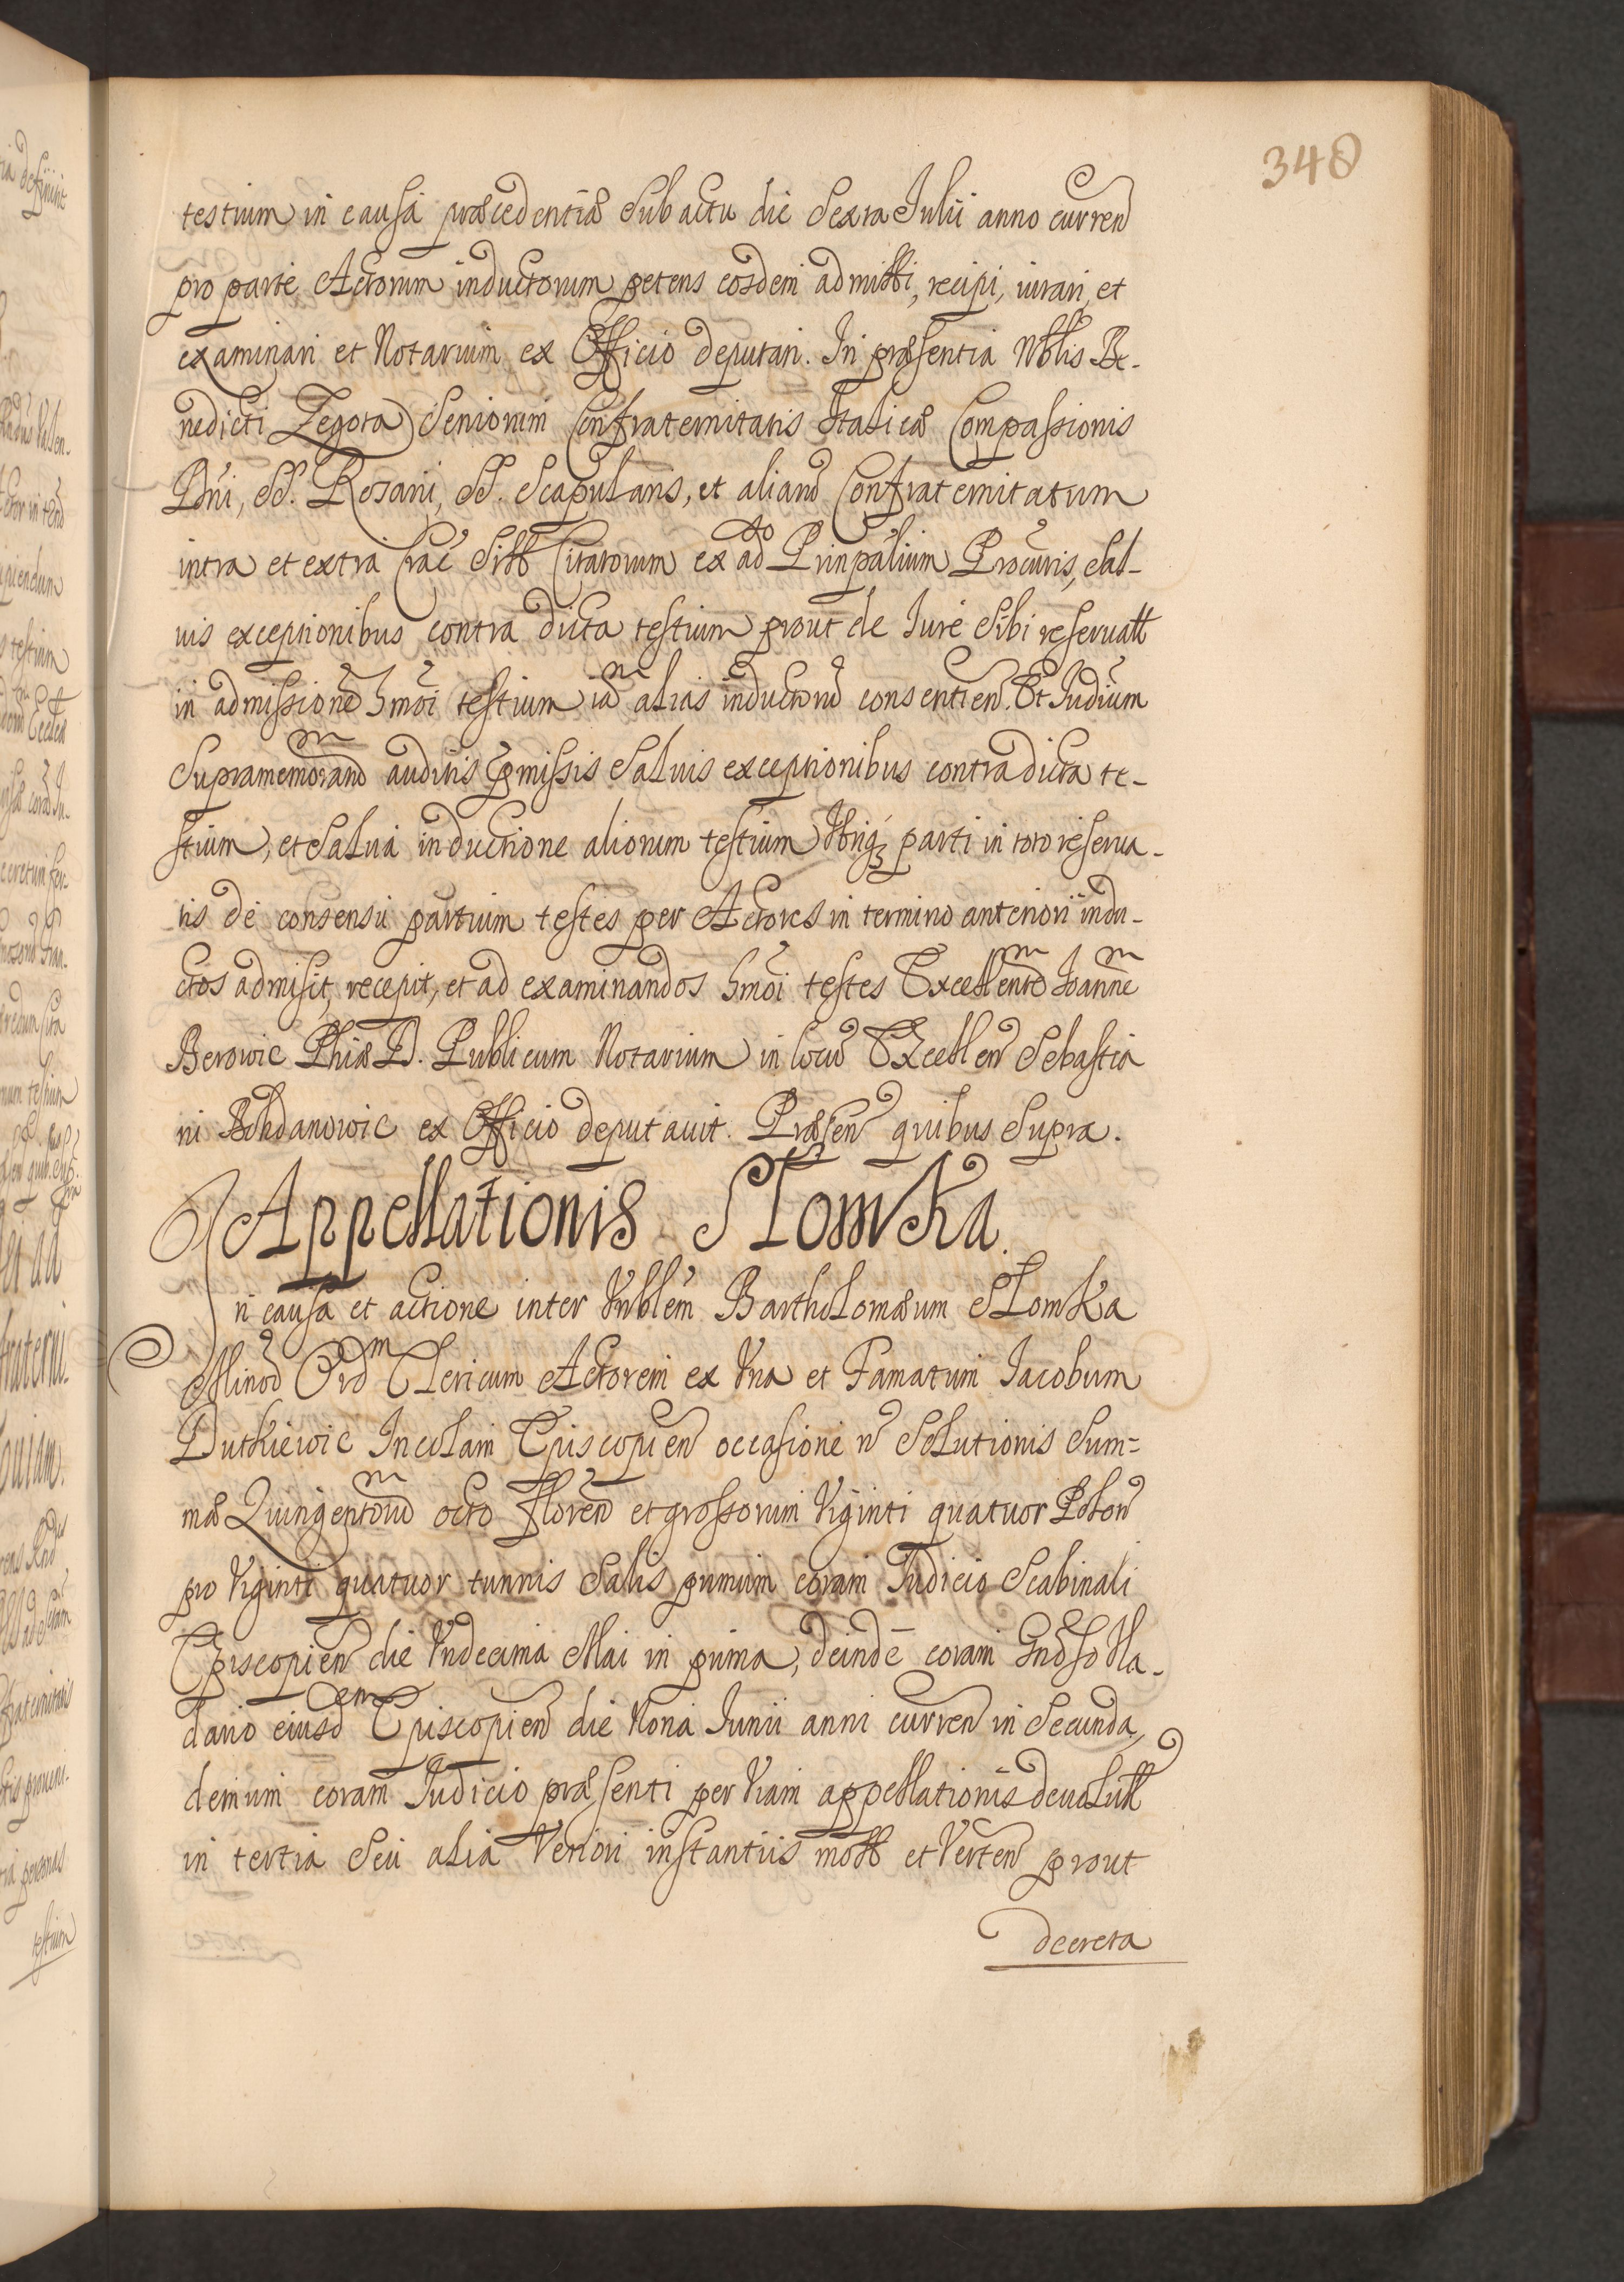 348
testium in causa præcedentiæ sub actu die Sexta Julii anno curren
pro parte Actorum inductorum petens eosdem admitti, recipi, iurari, et
examinari et Notarium ex Officio deputari. In præsentia Nobilis Be-
nedicti Zegota Seniorum Confraternitatis Italicæ Compassionis
Dni, SS. Rosarii, SS. Scapularis, et aliarū Confraternitatum
intra et extra Crac Citatorum ex ado Prinpalium Procuris, Sal-
uis exceptionibus contra dicta testium prout de Jure sibi reseruatt
in admissionē hmoi testium iam alias inductorū consentien. Et Judium
Supramemorandm auditis præmissis Saluis exceptionibus contra dicta te-
stium, et Salua inductione aliorum testium Utriqȝ parti in toto reserua-
tis de consensu partium testes per Actores in termino anteriori indu-
ctos admisit, recepit, et ad examinandos hmoi testes Excellentem Joannem
Berowic Phiæ D. Publicum Notarium in locū Excellen Sebastia
ni Bohdanowic ex Officio deputauit. Præsen quibus supra.
Appellationis Słomka.
In causa et actione inter Vnblem Bartholomæum Słomka
Minorū Ordm Clericum Actorem ex Vna et Famatum Jacobum
Dutkiewic Incolam Episcopien occasione n Solutionis Sum=
mæ Quingentorum octo floren et grossorum Viginti quatuor Polon
pro Viginti quatuor tunnis Salis primum coram Judicio Scabinali
Episcopien die Vndecima Mai in prima, deinde coram Gnoso Vla-
dario eiusdem Episcopien die Nona Junii anni curren in Secunda,
demum coram Judicio præsenti per Viam appellationis deuolutt
in tertia Seu alia Veriori instantiis mott et Verten prout
decreta